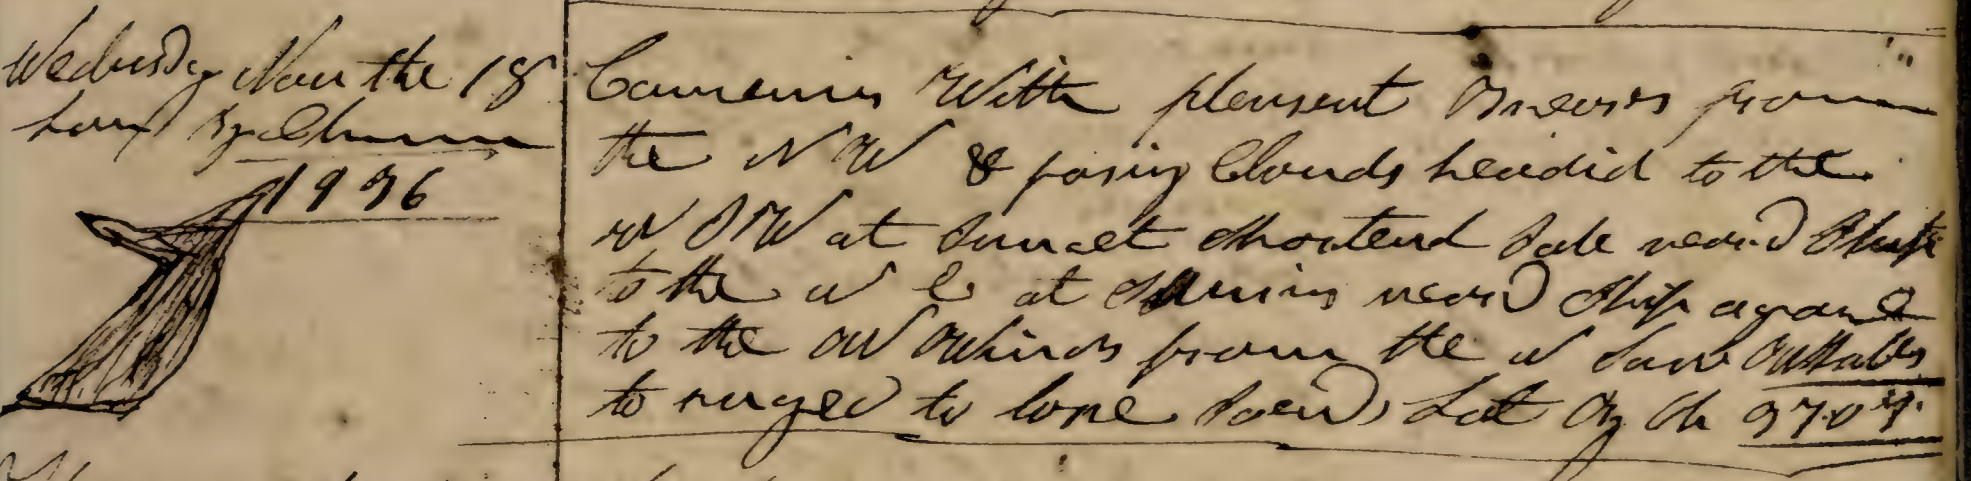 Wednsdy Nov the 18
Long By Chrun
Comences With plensent Breeses from
the N W & pasing Clouds headid to the
W S W at Sunset Shortend Sale weard Ship
to the N E at weard Ship agane
to the W Winds from the N Saw Whales
to ruged to lore Soend Lat By Ob